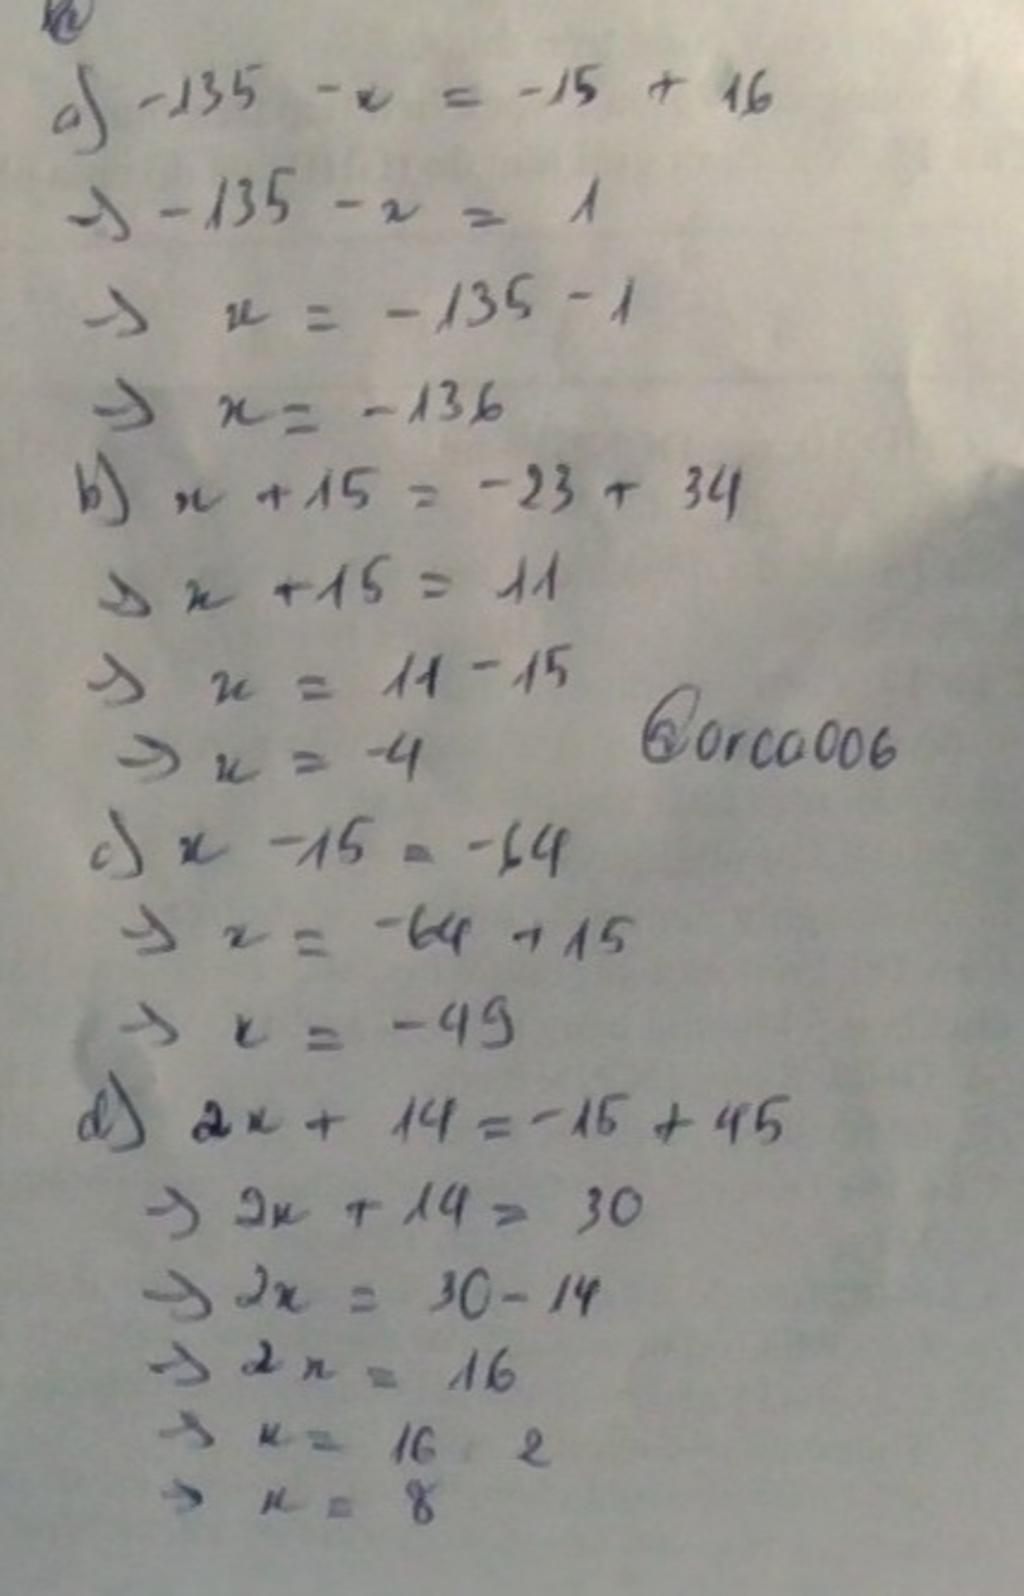 a) -135 - x = -15 + 16
→ -135 - x = 1
→ x = -135 - 1
→ x = -136
b) x + 15 = -23 + 34
→ x + 15 = 11
→ x = 11 - 15
→ x = -4
@orca006
c) x - 15 = -64
→ x = -64 + 15
→ x = -49
d) 2x + 14 = -15 + 45
→ 2x + 14 = 30
→ 2x = 30 - 14
→ 2x = 16
→ x = 16 2
→ x = 8